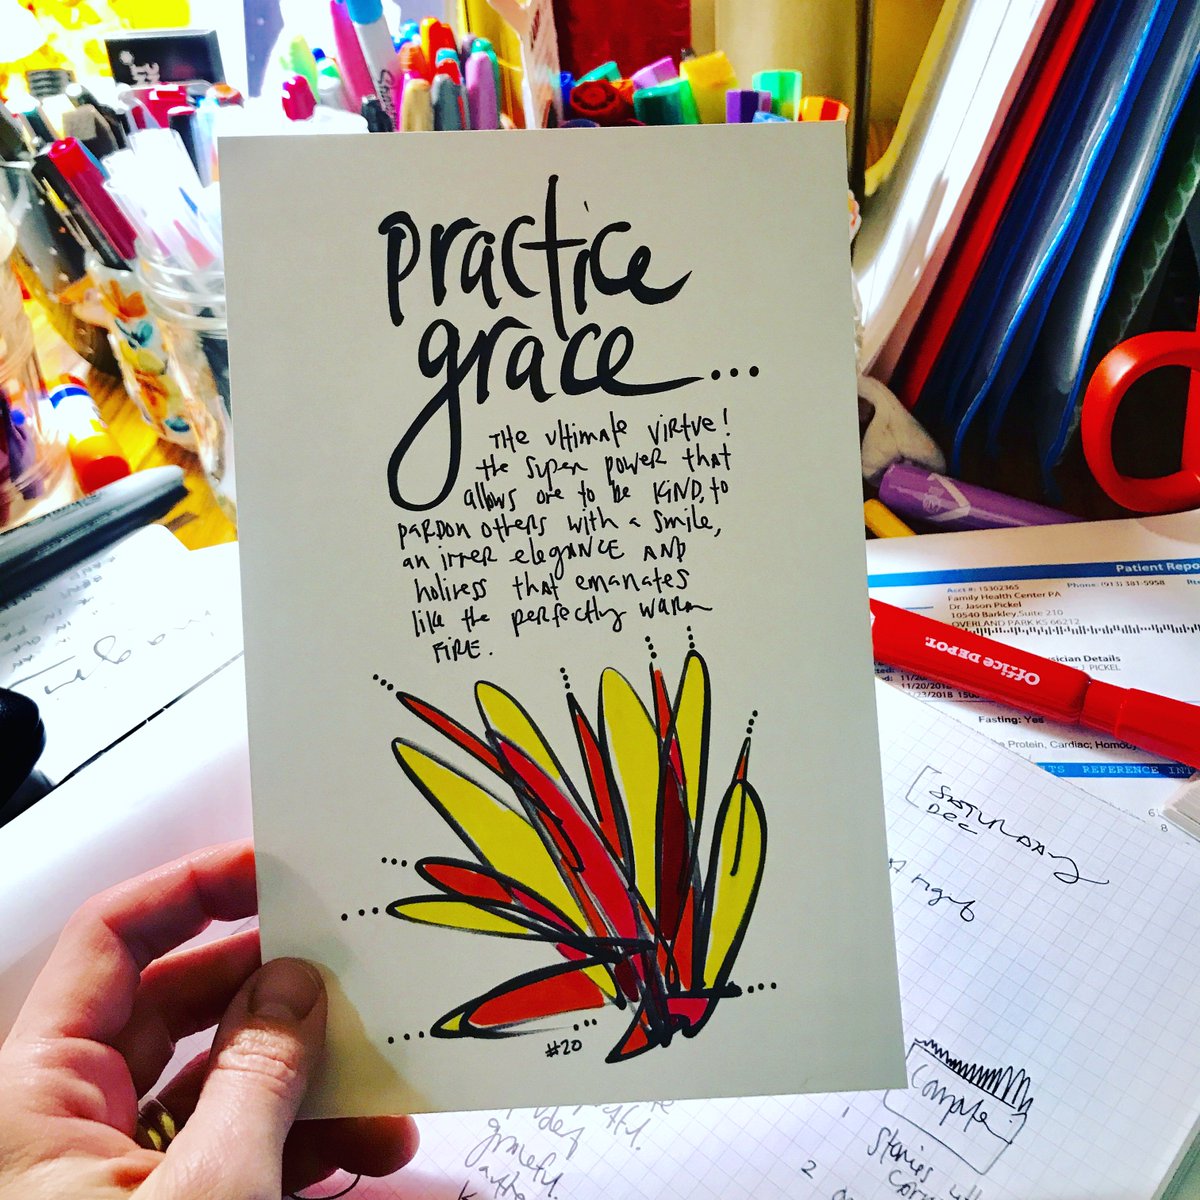 practice
grace...
THE ULTIMATE VIRTUE!
the super power that
allows one to be KIND, to
PARDON OTHERS with a smile,
an inner elegANCE AND
holiness that emanates
like the perfectly warm
FIRE.
#20
Sharpie
Patient Repo
Acct #: 15302365
Phone: (913) 381-5958
Family Health Center PA
Dr. Jason Pickel
10540 Barkley, Suite 210
OVERLAND PARK KS 66212
ysician Details
J. PICKEL
11/20/2018
Fasting: Yes
Protein, Cardiac; Homocy
REFERENCE INT
Office DEPOT
SATURDAY
DEC
Complete
Stories
grateful.
2